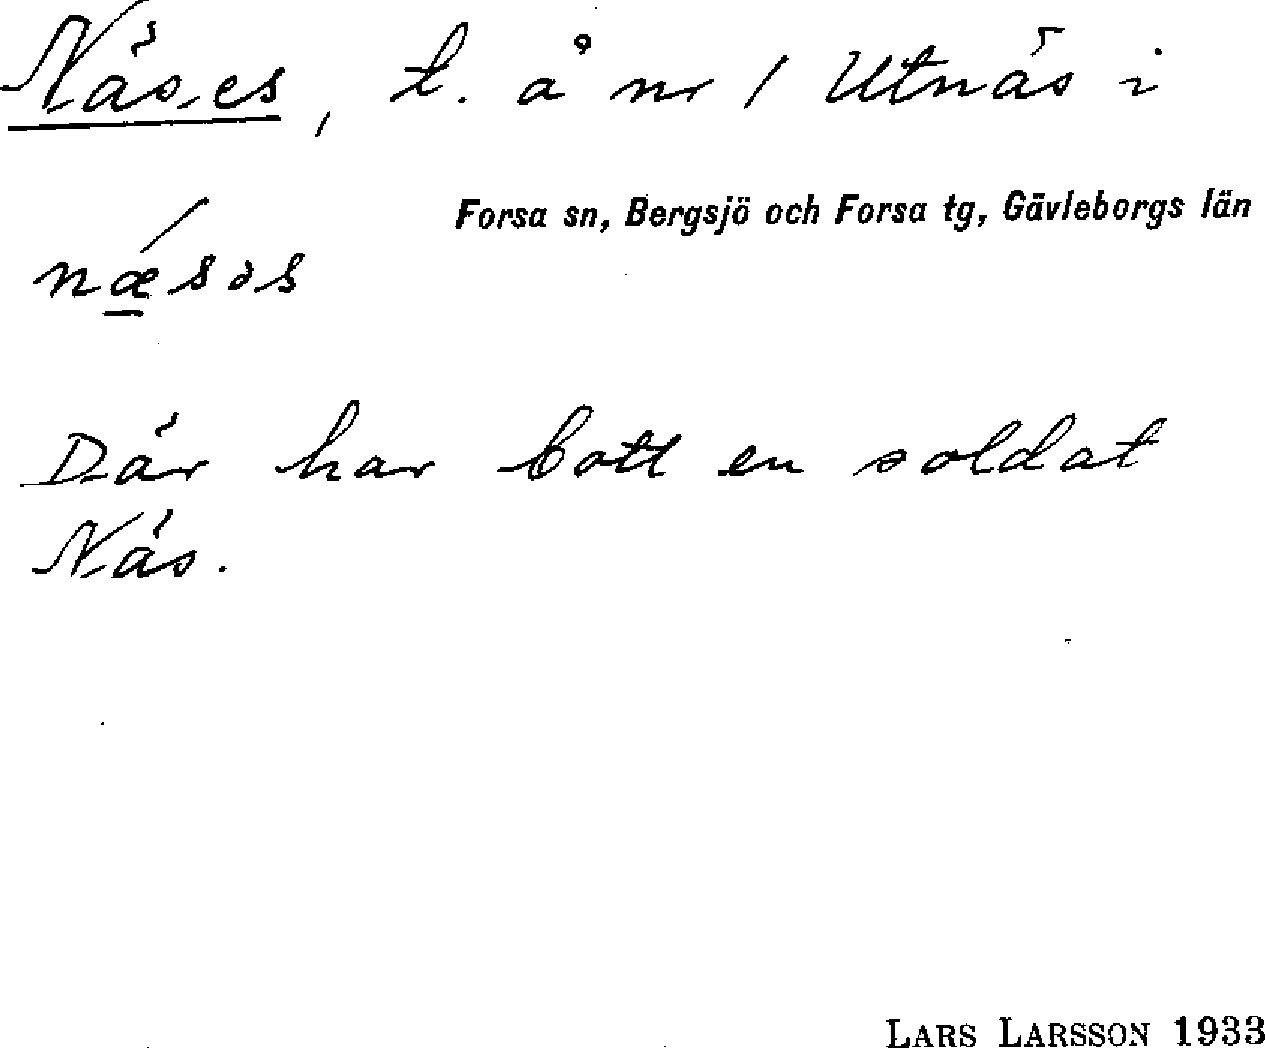 Näs-es, t. å nr 1 Utnäs i
Forsa sn, Bergsjö och Forsa tg, Gävleborgs län
nǽ̲səs
Där har bott en soldat
Näs.
LARS LARSSON 1933